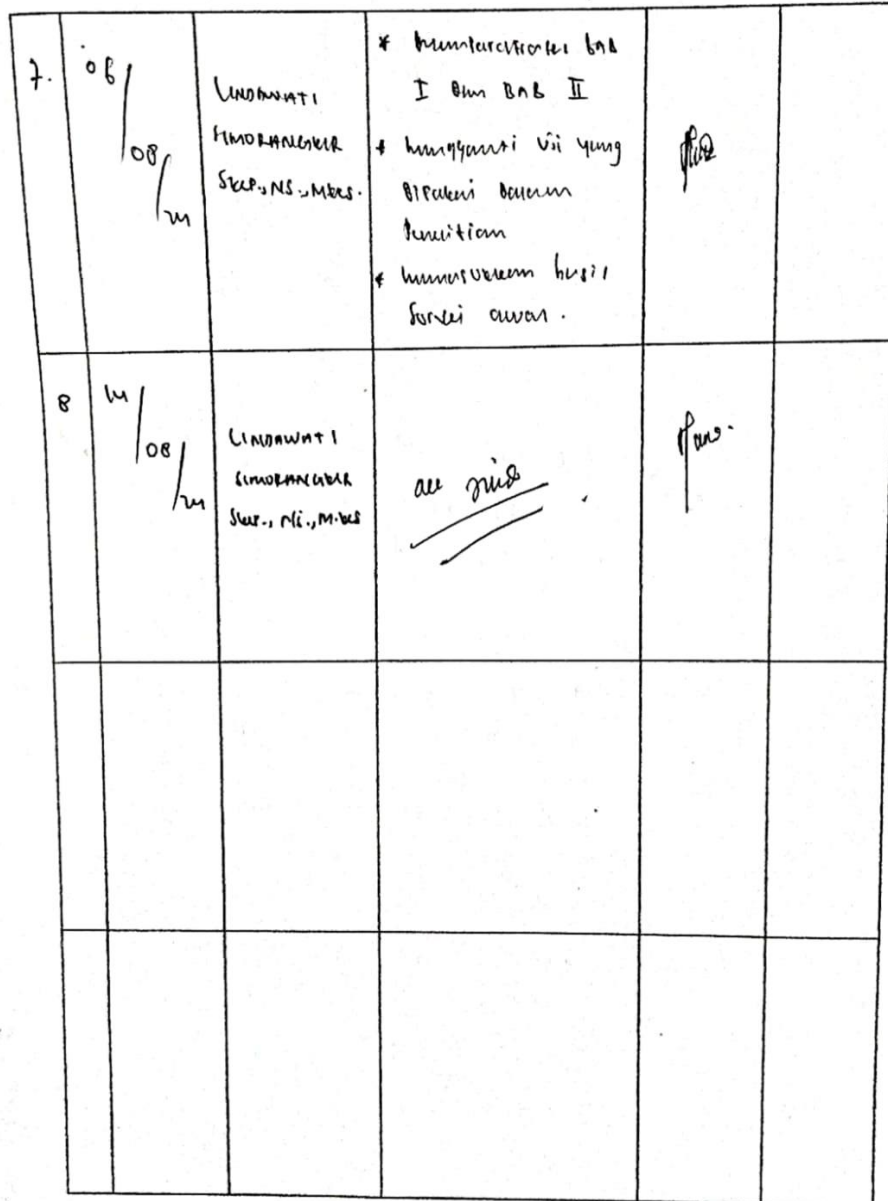 7.
06/08/24
LINDAWATI
SIMORANGKIR
S.Kep., NS., M.Kes.
* BAB
I dan BAB II
* mengganti Uji yang
dipakai dalam
Penelitian
* memasukkan hasil
Survei awal.
8
14/08/24
LINDAWATI
SIMORANGKIR
S.Kep., Ns., M.Kes
acc